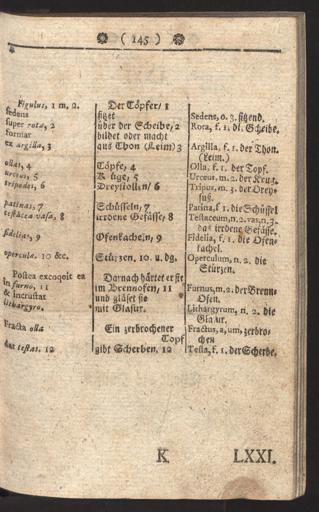 ( 145 )
Figulus, 1 m. 2.
sedens
super rota, 2
format
ex argilla, 3
ollas, 4
urceos, 5
tripodes, 6
patinas, 7
testacea vasa, 8
fidelias, 9
opercula. 10 &c.
Postea excoquit ea
in furno, 11
& incrustat
lithargyro.
Fracta olla
dat testas. 12
Der Töpfer/ 1
sitzet
über der Scheibe, 2
bildet oder macht
aus Thon (Leim) 3
Töpfe, 4
Krüge, 5
Dreystollen/ 6
Schüsseln, 7
irrdene Gefässe, 8
Ofenkacheln, 9
Stürzen. 10. u. dg.
Darnach härtet er sie
im Brennofen, 11
und gläset sie
mit Glasur.
Ein zerbrochener
Topf
gibt Scherben. 12
Sedens, o. 3. sitzend.
Rota, f. 1. di. Scheibe.
Argilla, f. 1. der Thon.
(Leim.)
Olla, f. 1. der Topf.
Urceus, m. 2. der Krug.
Tripus, m. 3. der Drey-
fuß.
Patina, f. 1. die Schüssel
Testaceum, n. 2. vas, n. 3.
das irrdene Gefässe.
Fidelia, f. 1. die Ofen-
kachel.
Operculum, n. 2. die
Stürzen.
Furnus, m. 2. der Brenn-
Ofen.
Lithargyrum, n. 2. die
Glasur.
Fractus, a, um, zerbro-
chen
Testa, f. 1. der Scherbe.
K
LXXI.